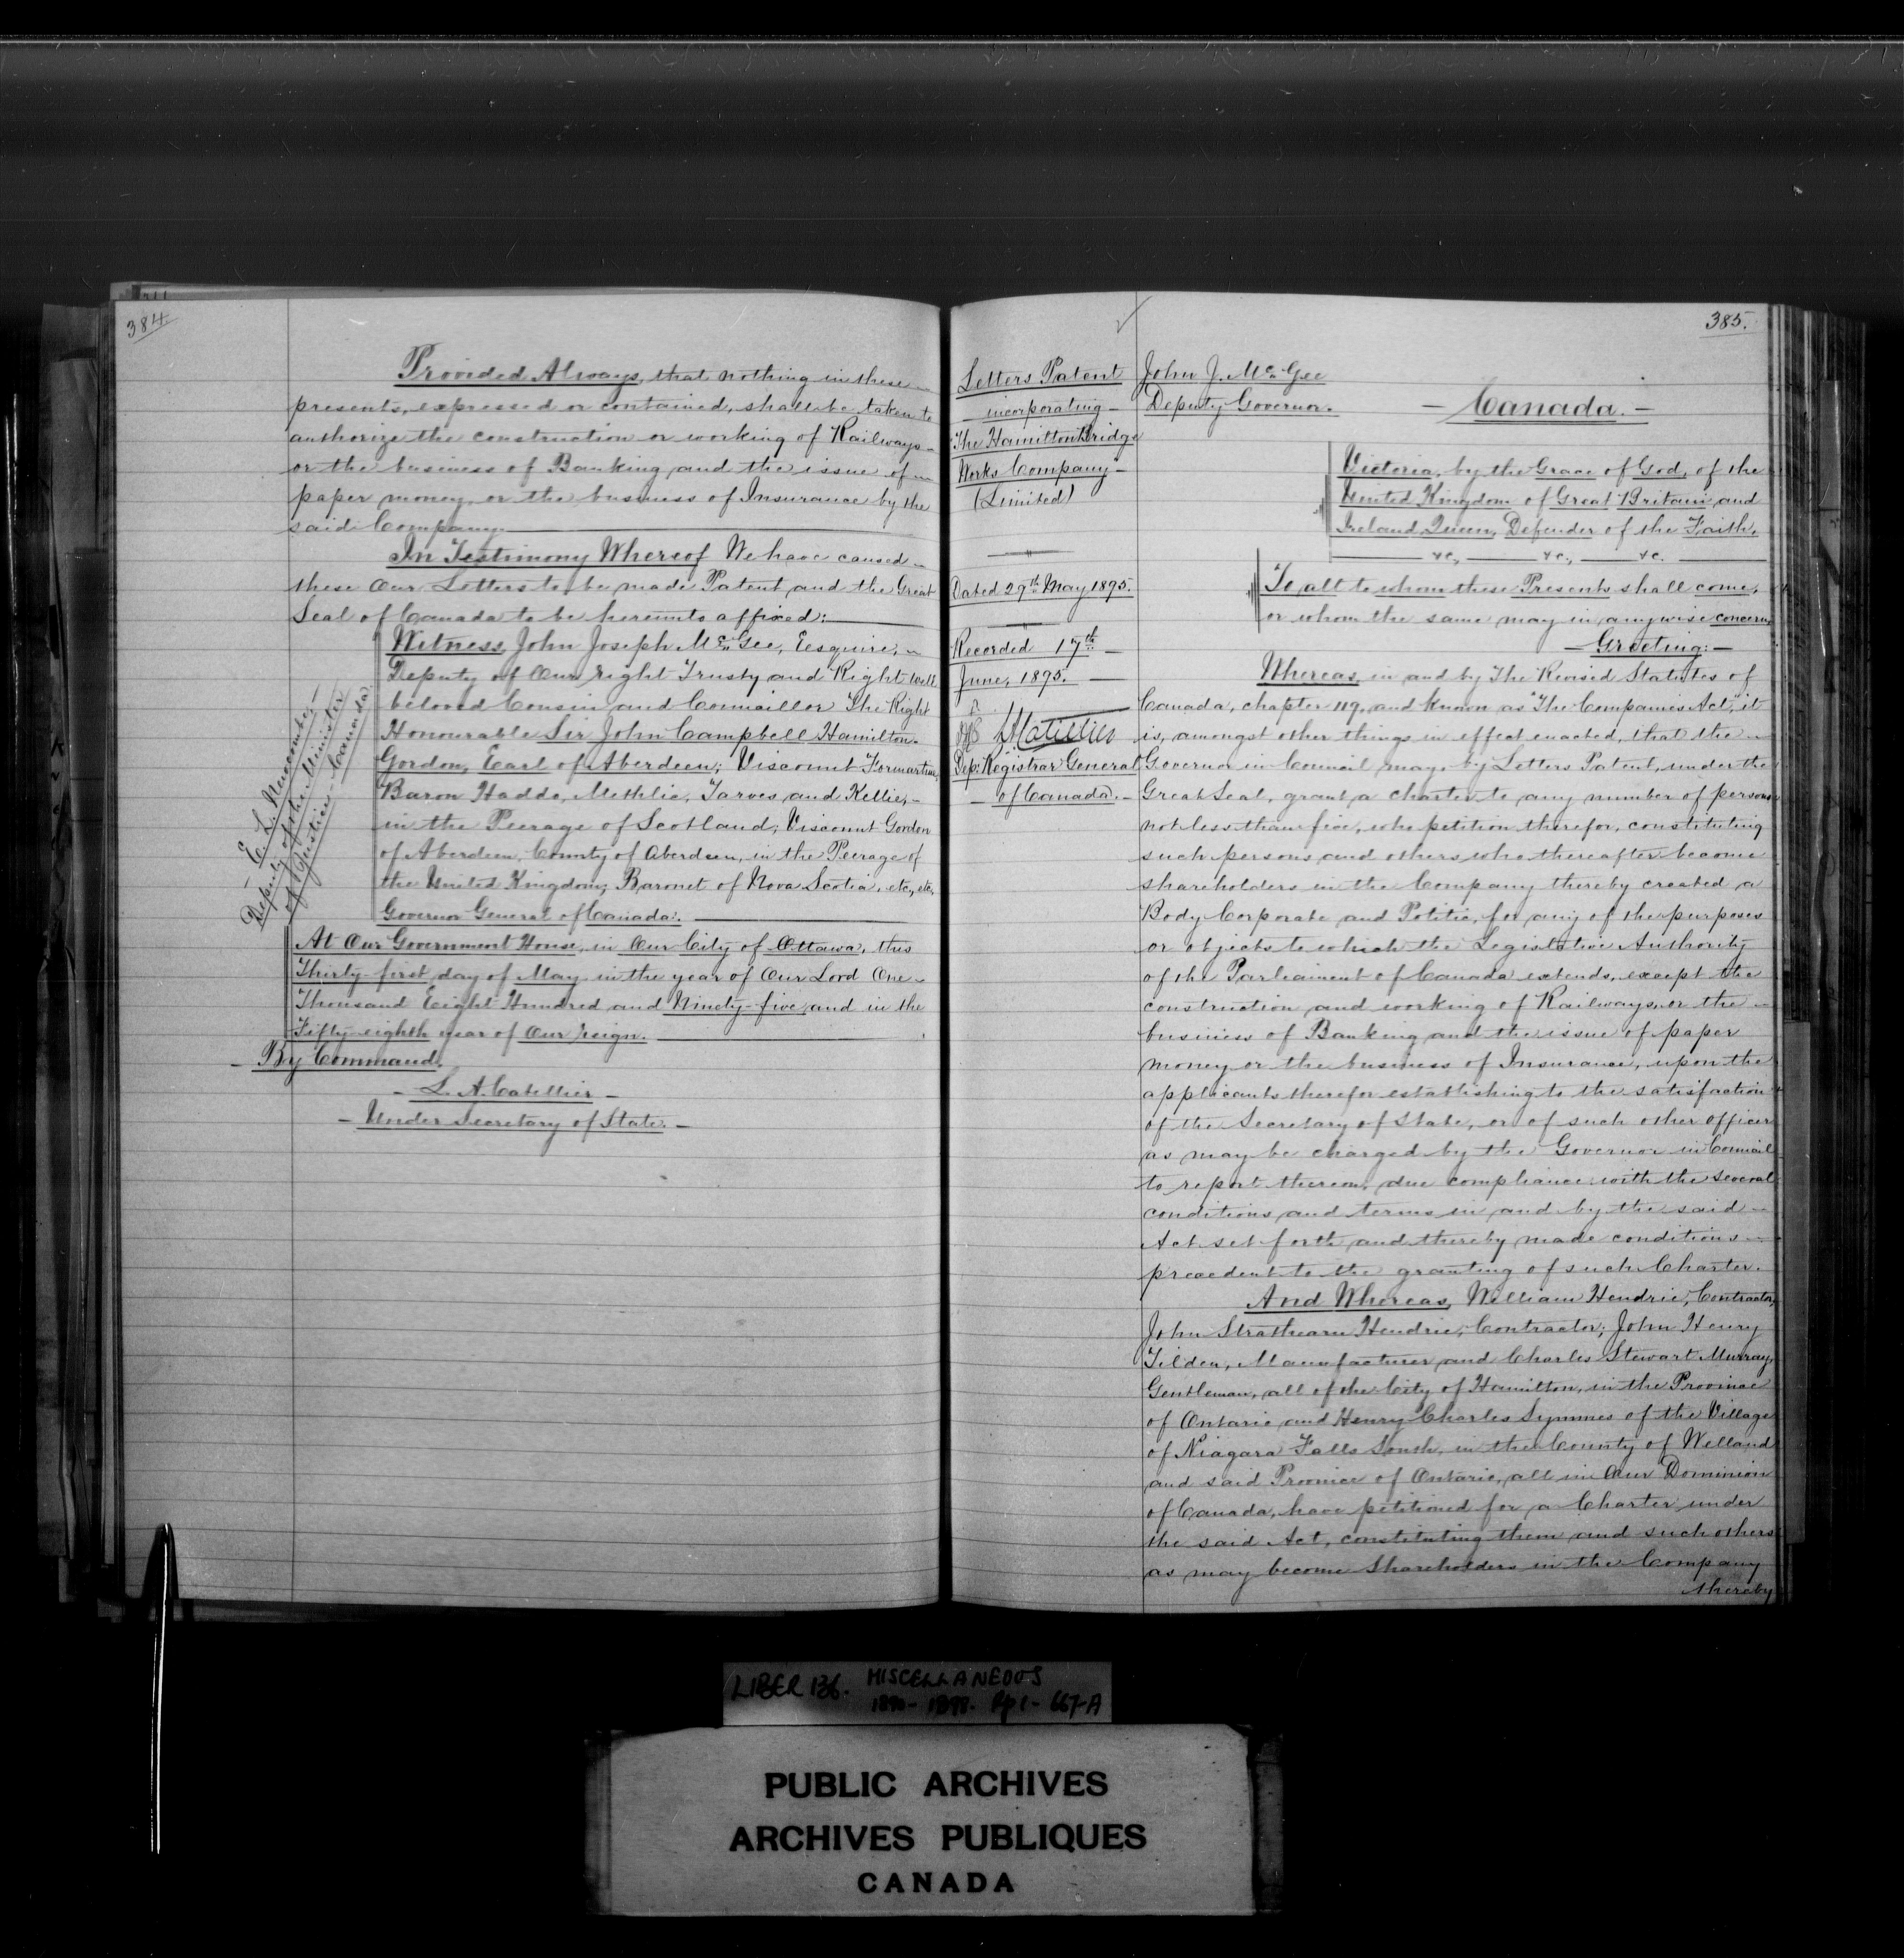 384
Provided Always, that nothing in these
presents, expressed or contained, shall be taken to
authorize the construction or working of Railways
or the business of Banking and the issue of
paper money, or the business of Insurance by the
said Company.
In Testimony Whereof We have caused
these Our Letters to be made Patent and the Great
Seal of Canada to be hereunto affixed:
Witness, John Joseph McGee, Esquire,
Deputy of Our right Trusty and Right well
beloved Cousin and Councillor The Right
Honourable Sir John Campbell Hamilton-
Gordon, Earl of Aberdeen; Viscount Formartine,
Baron Haddo, Methlic, Tarves and Kellie,
in the Peerage of Scotland; Viscount Gordon
of Aberdeen, County of Aberdeen, in the Peerage of
the United Kingdom; Baronet of Nova Scotia, etc, etc.
Governor General of Canada.
At Our Government House, in Our City of Ottawa, this
Thirty-first day of May in the year of Our Lord One
Thousand Eight Hundred and Ninety-five and in the
Fifty-eighth year of Our reign.
By Command.
L. A. Catellier
Under Secretary of State.
E. L. Newcombe
Deputy of the Minister
of Justice - Canada
385.
Letters Patent
incorporating
"The Hamilton Bridge
Works Company"
(Limited)
Dated 29th May 1895.
Recorded 17th
June, 1895.
LACatellier
Dep. Registrar General
of Canada.
John J. McGee
Deputy Governor.
Canada.
Victoria, by the Grace of God, of the
United Kingdom of Great Britain and
Ireland Queen, Defender of the Faith,
&c., &c., &c.
To all to whom these Presents shall come,
or whom the same may in anywise concern,
Greeting:
Whereas, in and by The Revised Statutes of
Canada, chapter 119, and known as "The Companies Act," it
is, amongst other things in effect enacted, that the
Governor in Council may, by Letters Patent, under the
Great Seal, grant a charter to any number of persons
not less than five, who petition therefor, constituting
such persons and others who thereafter become
shareholders in the Company thereby created a
Body Corporate and Politic, for any of the purposes
or objects to which the Legislative Authority
of the Parliament of Canada extends, except the
construction and working of Railways, or the
business of Banking and the issue of paper
money or the business of Insurance, upon the
applicants therefor establishing to the satisfaction
of the Secretary of State, or of such other officer
as may be charged by the Governor in Council
to report thereon, due compliance with the several
conditions and terms in and by the said
Act set forth and thereby made conditions
precedent to the granting of such Charter.
And Whereas, William Hendrie, Contractor,
John Strathearn Hendrie, Contractor, John Henry
Tilden, Manufacturer and Charles Stewart Murray,
Gentleman, all of the City of Hamilton, in the Province
of Ontario and Henry Charles Symmes of the Village
of Niagara Falls South, in the County of Welland
and said Province of Ontario, all in Our Dominion
of Canada, have petitioned for a Charter under
the said Act, constituting them and such others
as may become Shareholders in the Company
thereby
LIBER 136. MISCELLANEOUS
1890-1898. Pp 1-667-A
PUBLIC ARCHIVES
ARCHIVES PUBLIQUES
CANADA